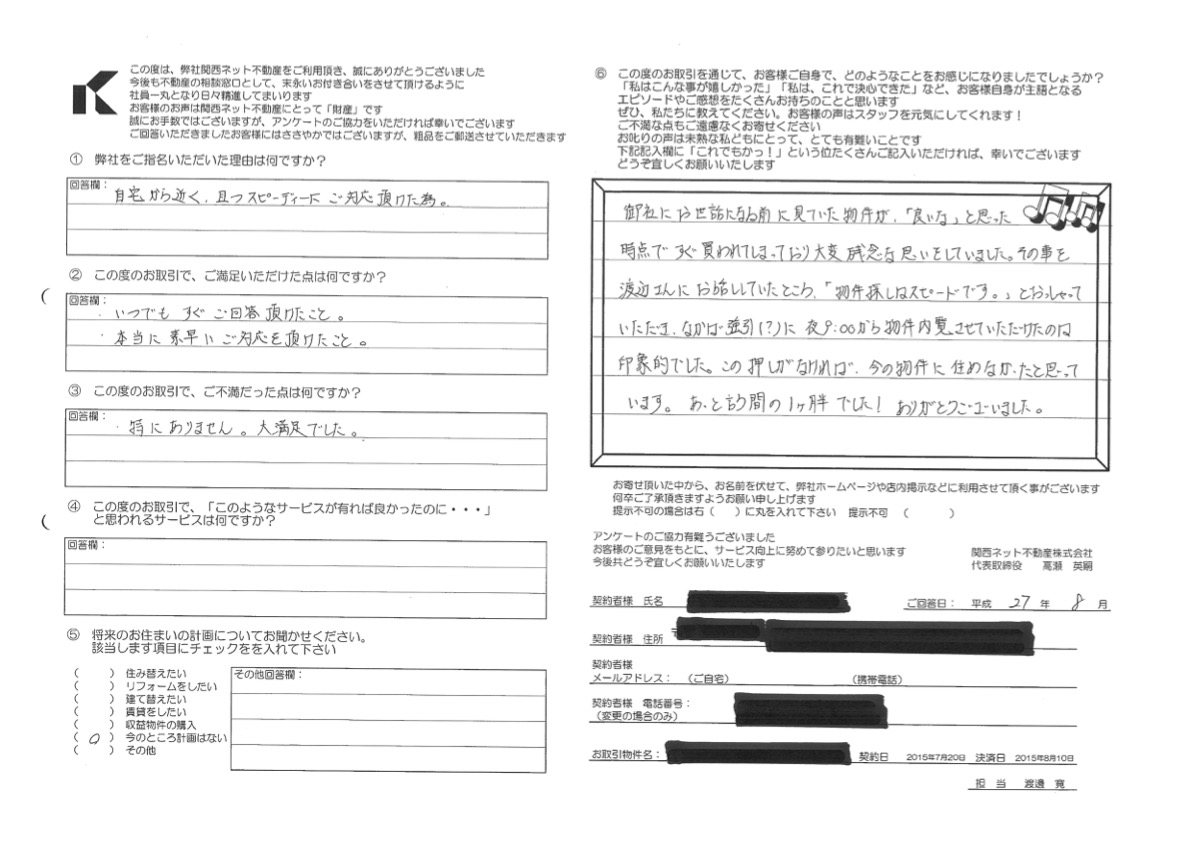 この度は、弊社関西ネット不動産をご利用頂き、誠にありがとうございました
今後も不動産の相談窓口として、末永いお付き合いをさせて頂けるように
社員一丸となり日々精進してまいります
お客様のお声は関西ネット不動産にとって「財産」です
誠にお手数ではございますが、アンケートのご協力をいただければ幸いでございます
ご回答いただきましたお客様にはささやかではございますが、粗品をご郵送させていただきます
① 弊社をご指名いただいた理由は何ですか?
回答欄:
自宅から近く、且つスピーディーに ご対応 頂けた為。
② この度のお取引で、ご満足いただけた点は何ですか?
回答欄:
・いつでも すぐ ご回答 頂けたこと。
・本当に 素早い ご対応を頂けたこと。
③ この度のお取引で、ご不満だった点は何ですか?
回答欄:
・特に ありません。大満足でした。
④ この度のお取引で、「このようなサービスが有れば良かったのに・・・」
と思われるサービスは何ですか?
回答欄:
⑤ 将来のお住まいの計画についてお聞かせください。
該当します項目にチェックをを入れて下さい
( ) 住み替えたい
( ) リフォームをしたい
( ) 建て替えたい
( ) 賃貸をしたい
( ) 収益物件の購入
( ○ ) 今のところ計画はない
( ) その他
その他回答欄:
⑥ この度のお取引を通じて、お客様ご自身で、どのようなことをお感じになりましたでしょうか?
「私はこんな事が嬉しかった」「私は、これで決心できた」など、お客様自身が主語となる
エピソードやご感想をたくさんお持ちのことと思います
ぜひ、私たちに教えてください。お客様の声はスタッフを元気にしてくれます!
ご不満な点もご遠慮なくお寄せください
お叱りの声は未熟な私どもにとって、とても有難いことです
下記記入欄に「これでもかっ!」という位たくさんご記入いただければ、幸いでございます
どうぞ宜しくお願いいたします
御社に お世話になる前に見ていた物件が、「良いな」と思った
時点で すぐ買われてしまっており大変 残念な思いをしていました。その事を
渡辺さんに お話ししていたところ、「物件探しはスピードです。」とおっしゃって
いただき、なかば強引(?)に 夜9:00から物件内覧させていただけたのは
印象的でした。この 押しがなければ、今の物件に 住めなかったと思って
います。 あっと言う間の1ヶ月半でした! ありがとうございました。
お寄せ頂いた中から、お名前を伏せて、弊社ホームページや店内掲示などに利用させて頂く事がございます
何卒ご了承頂きますようお願い申し上げます
提示不可の場合は右( )に丸を入れて下さい 提示不可 ( )
アンケートのご協力有難うございました
お客様のご意見をもとに、サービス向上に努めて参りたいと思います
今後共どうぞ宜しくお願いいたします
関西ネット不動産株式会社
代表取締役 高瀬 英嗣
契約者様 氏名
ご回答日: 平成 27 年 8 月
契約者様 住所 〒
契約者様
メールアドレス: (ご自宅) (携帯電話)
契約者様 電話番号:
(変更の場合のみ)
お取引物件名: 契約日 2015年7月20日 決済日 2015年8月10日
担 当 渡邊 寛